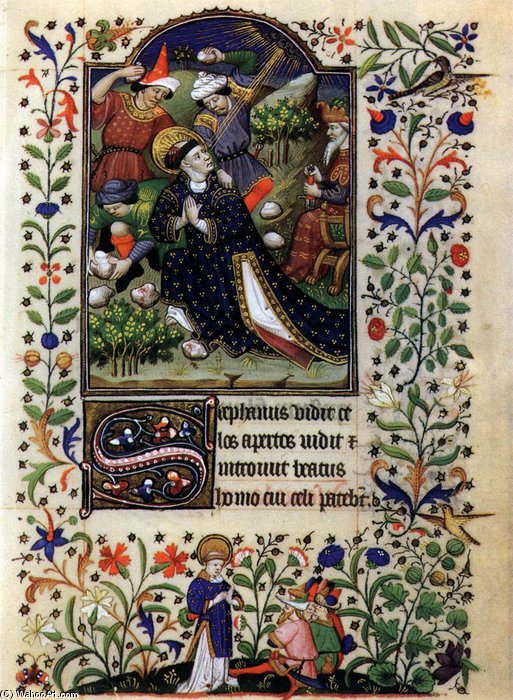 Stephanus vidit ce
los apertos uidit &
introiuit beatus
homo cui celi patebāt
(C) WahooArt.com